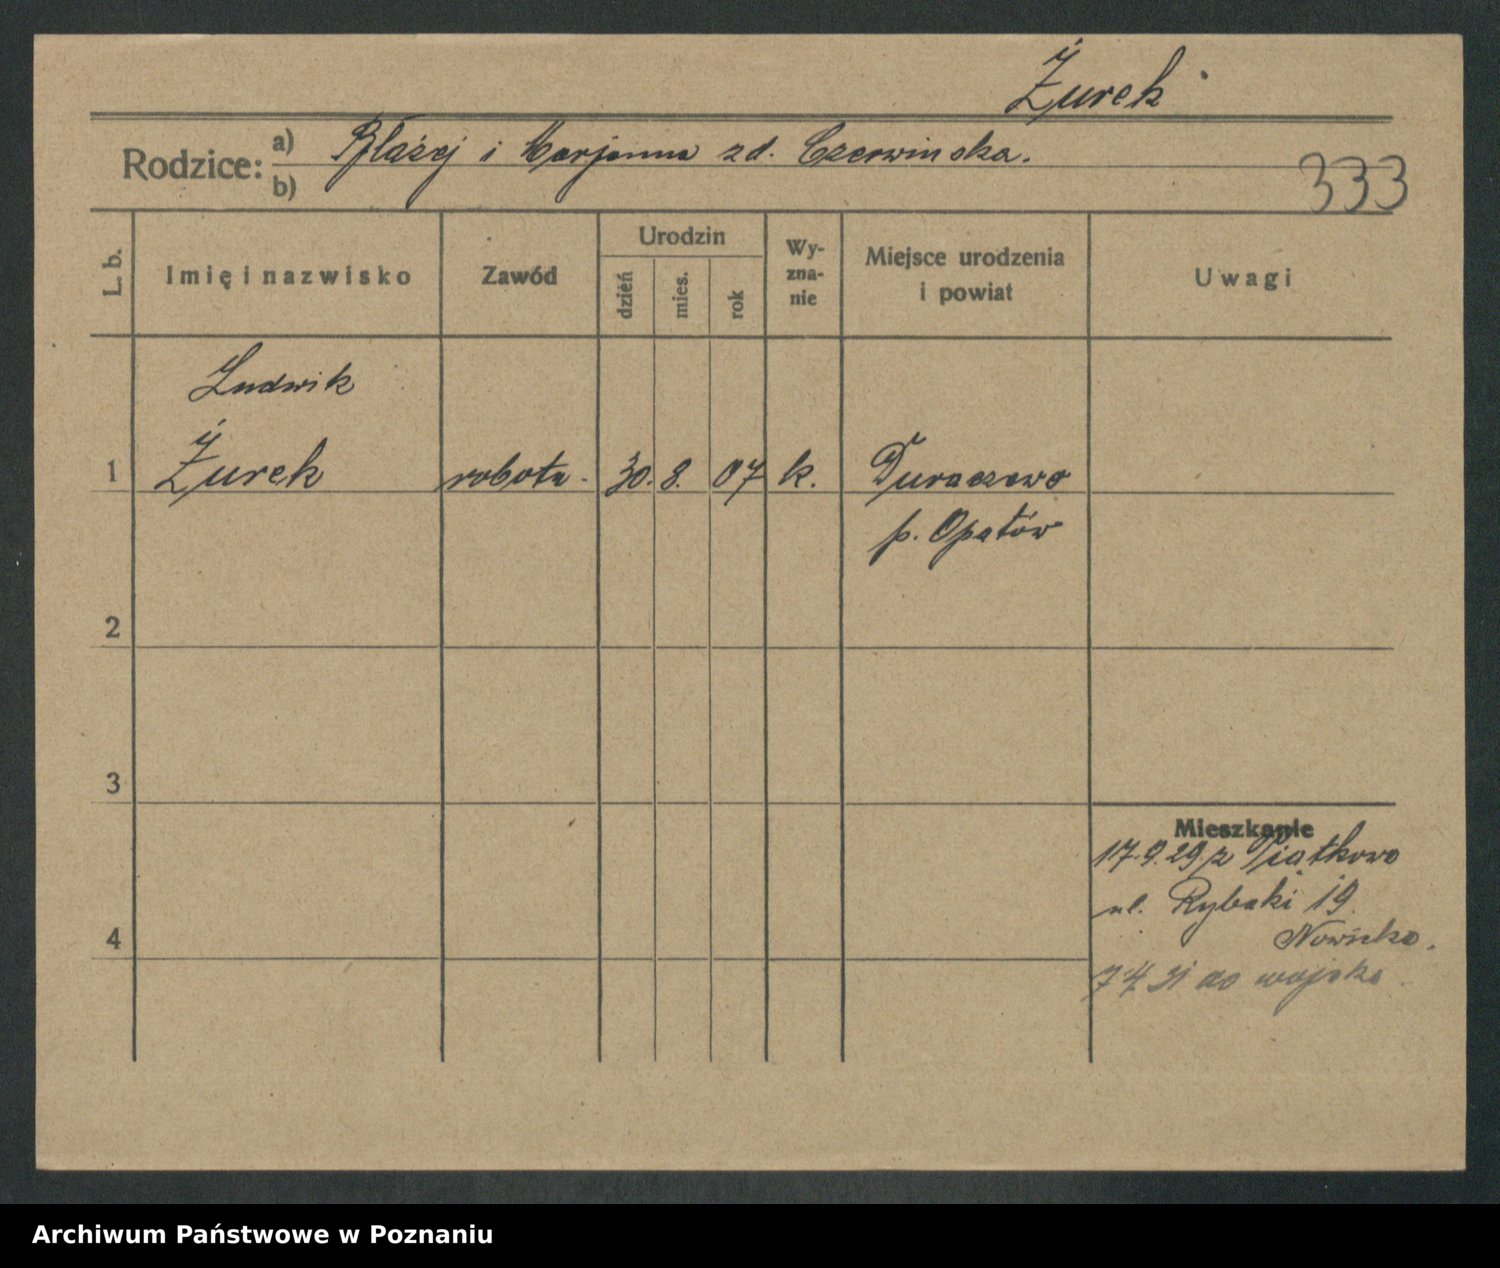 Żurek
Rodzice: a) Błażej i Marjanna zd. Czerwinska.
b)
333
L. b.
Imię i nazwisko
Zawód
Urodzin
dzień
mies.
rok
Wy-
zna-
nie
Miejsce urodzenia
i powiat
Uwagi
Ludwik
1 Żurek robotn. 30. 8. 07 k. Duraczewo
p. Opatów
2
3
Mieszkanie
17.9.29 z Piątkowo
ul. Rybaki 19
4
Nowicka.
7 4 31 do wojska.
Archiwum Państwowe w Poznaniu